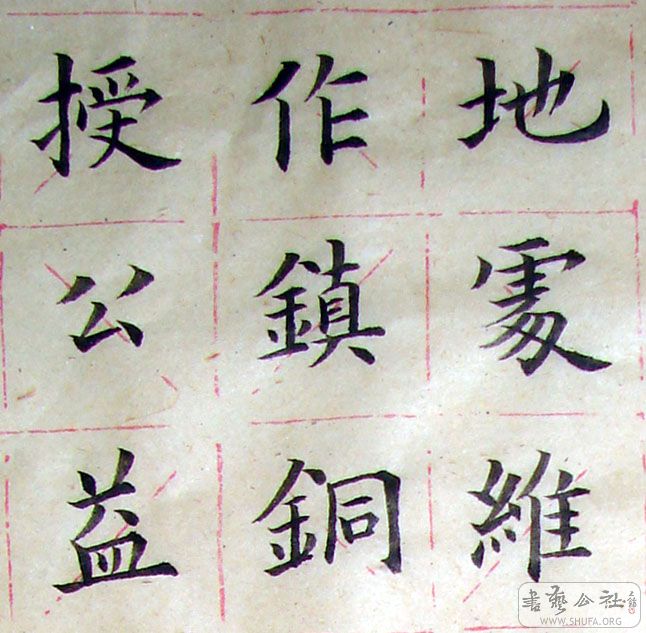 地處維
作鎮銅
授公益
書藝公社
WWW.SHUFA.ORG